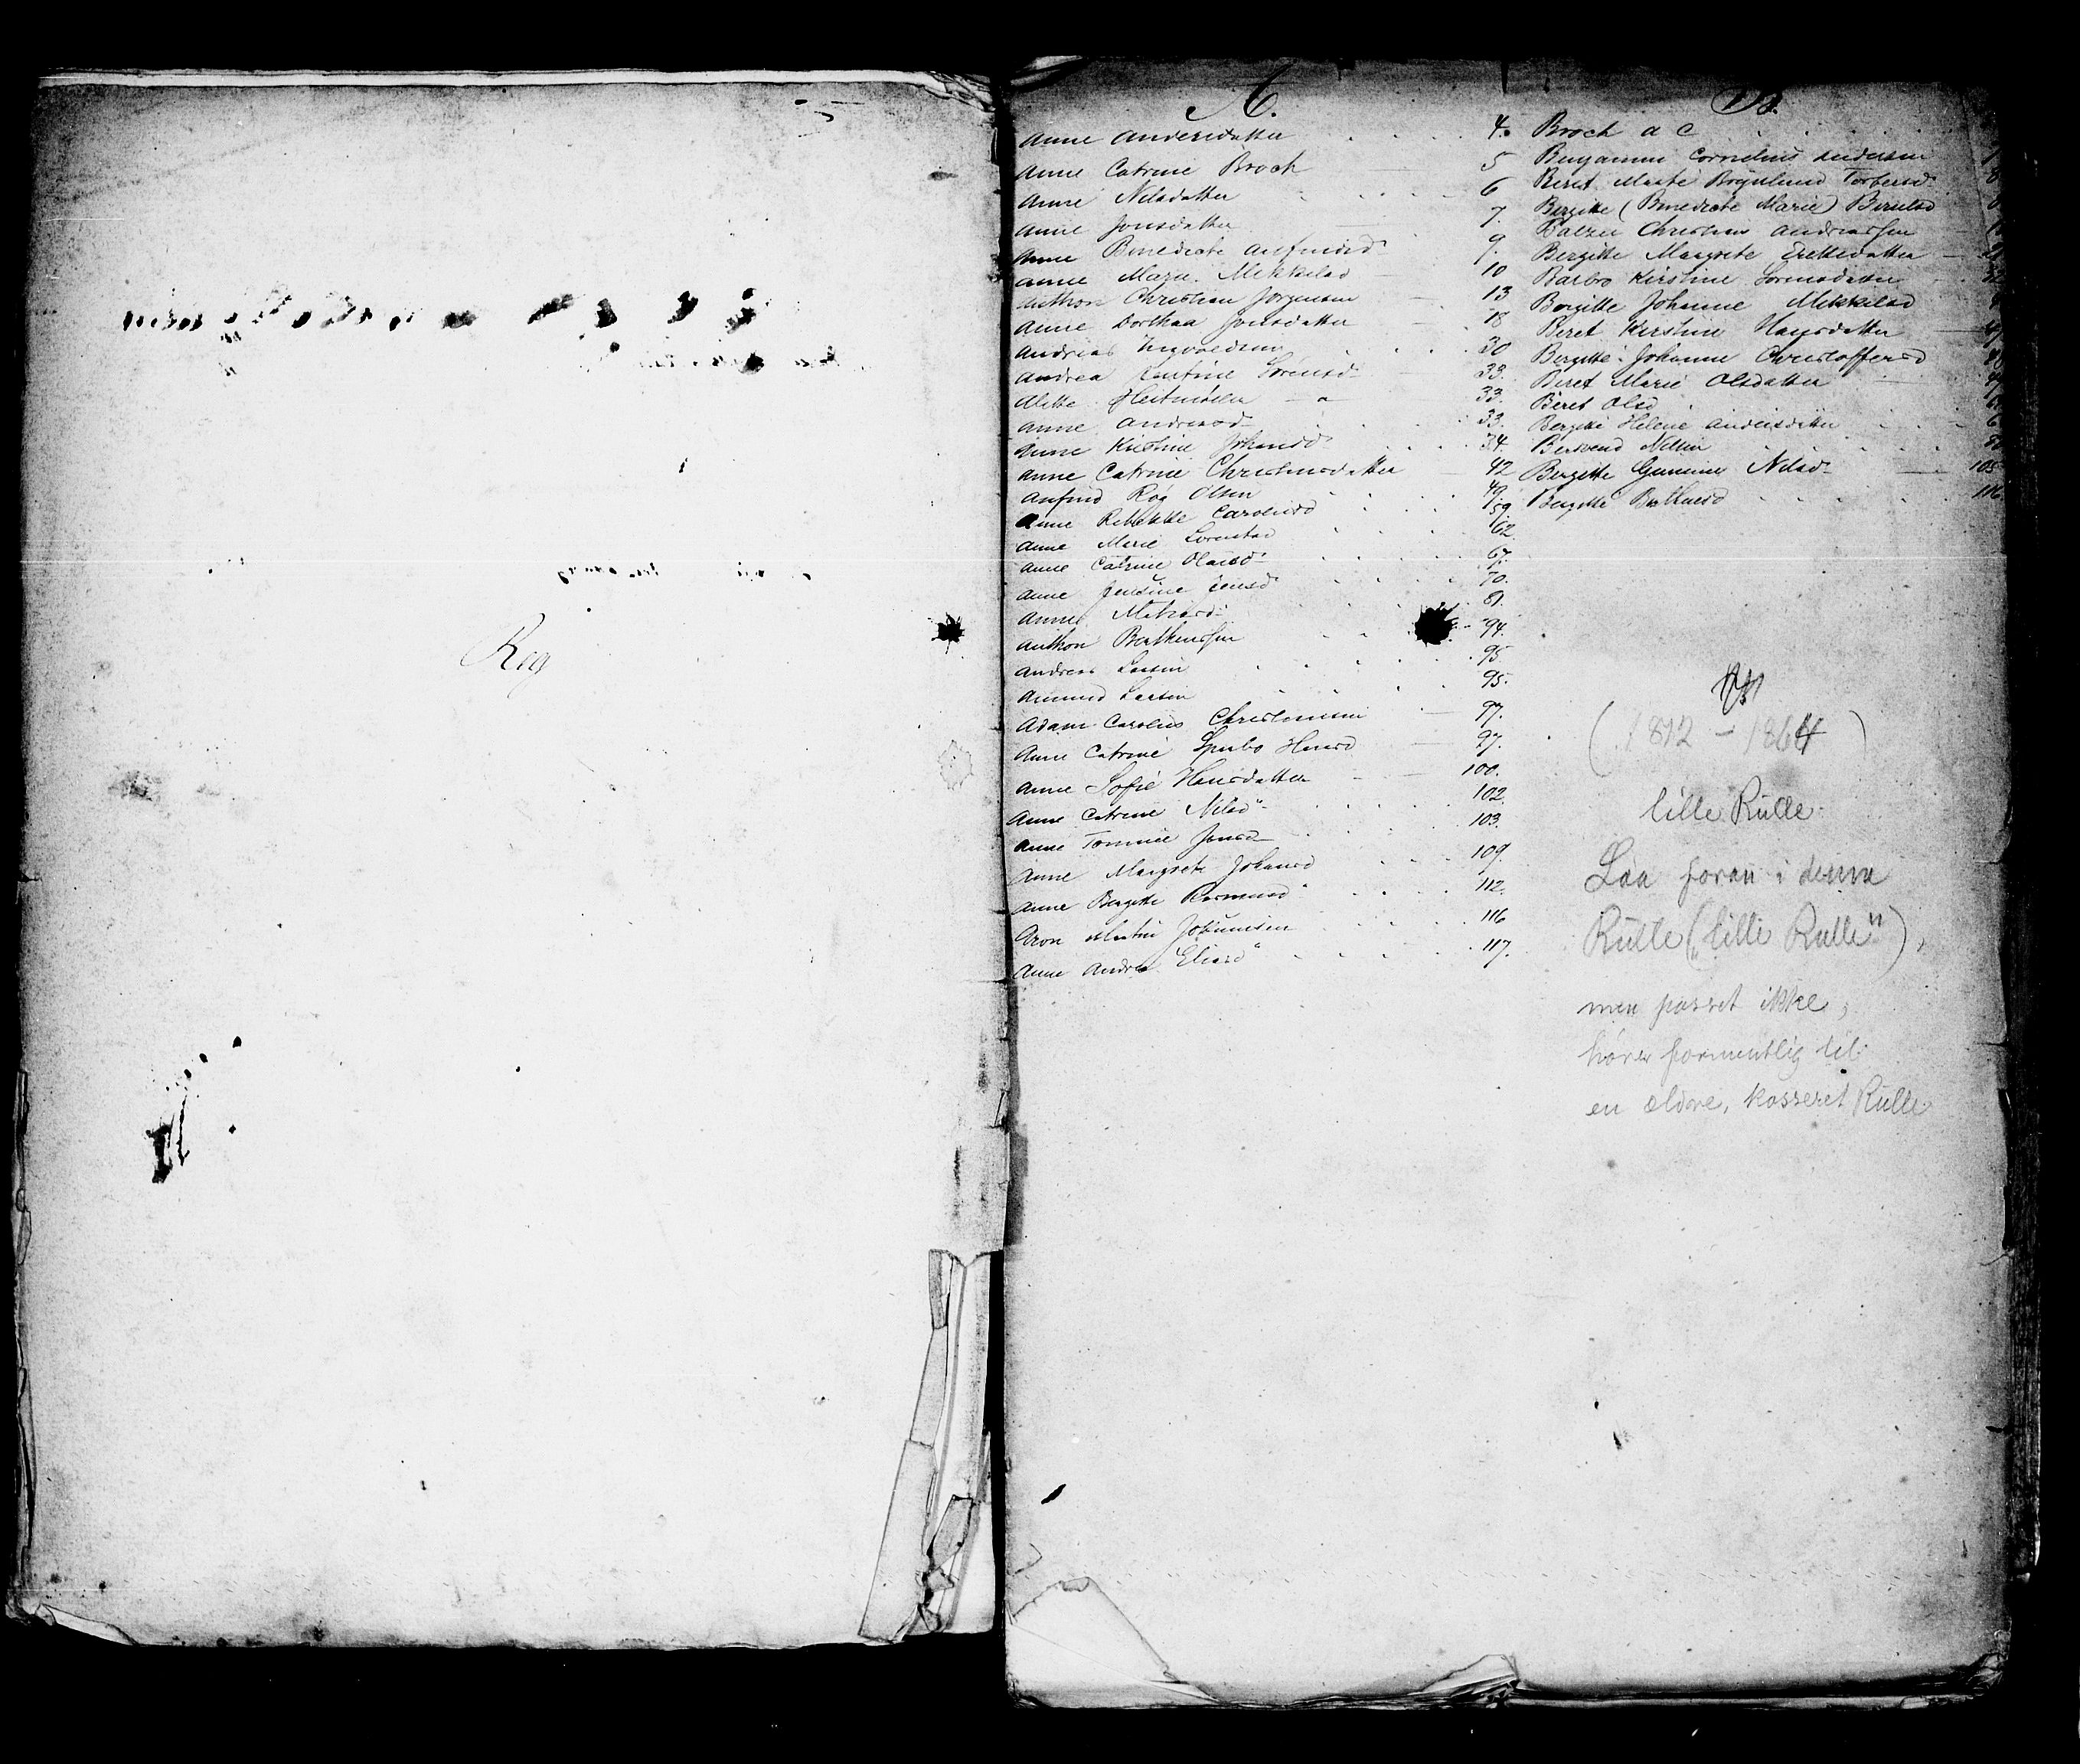 Reg
A.
Anne Andersdatter 4.
Anne Catrine Broch 5
Anne Nilsdatter 6
Anne Jonsdatter 7.
Anne Benedicte Anfindsd 9.
Anne Mikkelsd 10
Anthon Christian Jørgensen 13
Anne Dorthea Jonsdatter 18
Andreas Ingvaldsen 30
Andrea Sørensd 33.
Alette 33.
Anne Andreasd 33.
Anne Kirstine Johansd 34.
Anne Catrine Christensdatter 42
Anfind Røg Olsen 49.
Anne Rebekke Carolusd 59.
Anne Marie Lorentsd 62.
Anne Catrine Olausd 67.
Anne Jensine Jensd 70.
Anne 81.
Anthon Berthensen 94.
Andreas Larsen 95
Amund Larsen 95.
Adam Carolus Christensen 97.
Anne Catrine Hansd 97.
Anne Sofie Hansdatter 100.
Anne Catrine Nilsd 102.
Anne Jensd 103.
Anne Margrete Johansd 109.
Anne Bergitte Rasmusd 112.
Aron Martin Johansen 116
Anne Andrea Eliasd 117.
B.
Broch A C
Benjamin Cornelius Andersen
Beret Marte Torbersd
Bergitte (Benedicte Marie) Berntsd
Balzer Christian Andreassen
Bergitte Margrete
Barbro Kirstine Sørensdatter
Bergitte Johanne Mikkelsd
Beret Kirstine Hansdatter
Bergitte Johanne Christoffersd
Beret Marie Olsdatter
Beret Olsd
Bergitte Helene Andersdatter
Berntend Nilsen
Bergitte Gunine Nilsd 105
Bergitte Berthensd 116.
(1812 – 1864)
lille Rulle
Laa foran i denne
Rulle („lille Rulle"),
men passet ikke,
hører formentlig til
en ældre, kasseret Rulle